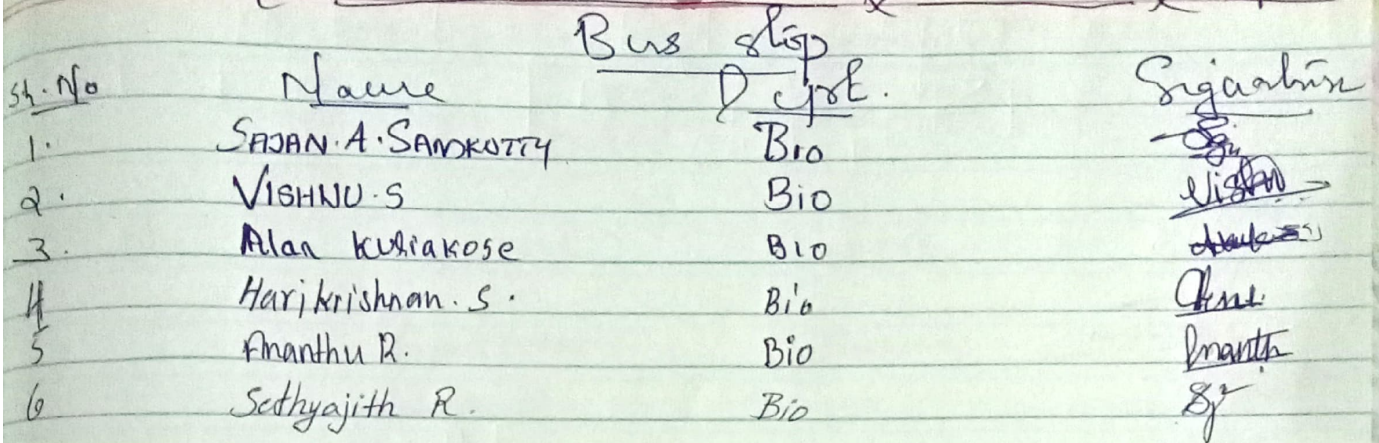 Bus stop
Sl. No Name Dept. Signature
1. SAJAN. A. SAMKUTTY Bio
2. VISHNU. S Bio Vishnu
3. Alan Kuriakose BIO
4 Harikrishnan. S. Bio
5 Ananthu R. Bio Ananth
6 Sethyajith R. Bio